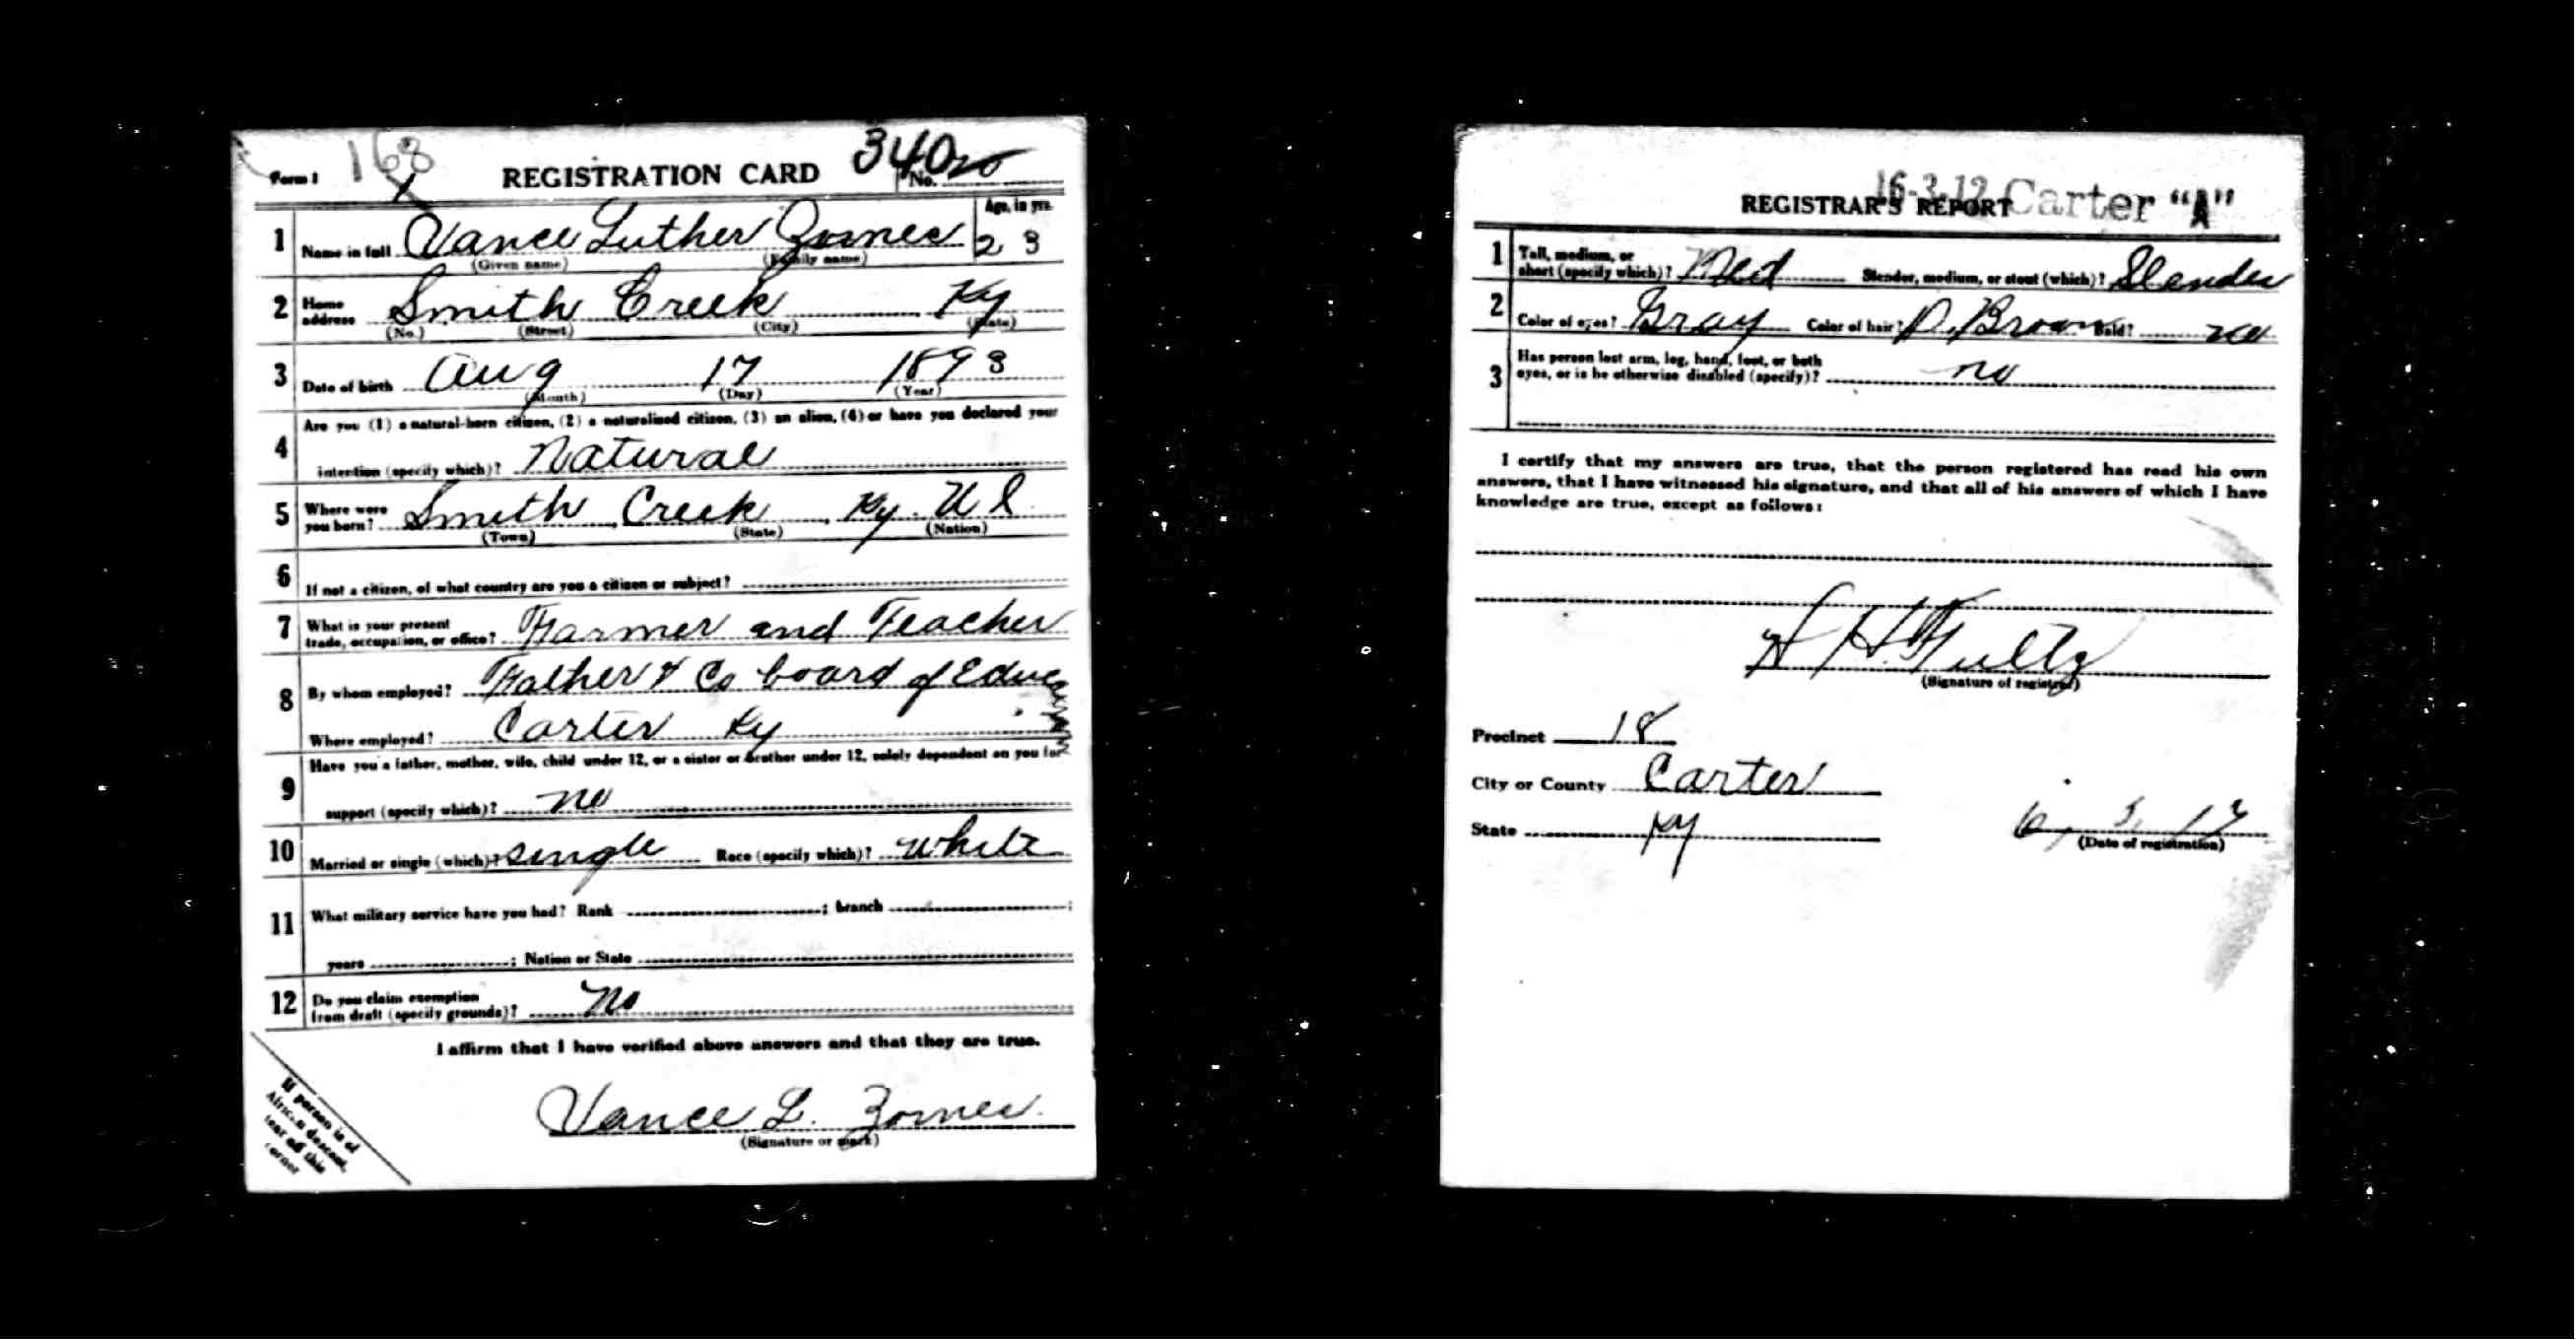 Form 1 168 REGISTRATION CARD 340 No.
1 Name in full Vance Luther Zornes Age, in yrs. 23
(Given name) (Family name)
2 Home address Smith Creek Ky
(No.) (Street) (City) (State)
3 Date of birth Aug 17 1893
(Month) (Day) (Year)
4 Are you (1) a natural-born citizen, (2) a naturalized citizen, (3) an alien, (4) or have you declared your
intention (specify which)? Natural
5 Where were you born? Smith Creek Ky. U S
(Town) (State) (Nation)
6 If not a citizen, of what country are you a citizen or subject?
7 What is your present trade, occupation, or office? Farmer and Teacher
8 By whom employed? Father & Co board of Educ
Where employed? Carter Ky
9 Have you a father, mother, wife, child under 12, or a sister or brother under 12, solely dependent on you for
support (specify which)? no
10 Married or single (which)? single Race (specify which)? White
11 What military service have you had? Rank ; branch ;
years ; Nation or State
12 Do you claim exemption from draft (specify grounds)? No
I affirm that I have verified above answers and that they are true.
Vance L. Zornes
(Signature or mark)
If person is of
African descent,
tear off this
corner
16-3-12 Carter "A"
REGISTRAR'S REPORT
1 Tall, medium, or short (specify which)? Med Slender, medium, or stout (which)? Slender
2 Color of eyes? Gray Color of hair? D. Brown Bald? no
3 Has person lost arm, leg, hand, foot, or both
eyes, or is he otherwise disabled (specify)? no
I certify that my answers are true, that the person registered has read his own
answers, that I have witnessed his signature, and that all of his answers of which I have
knowledge are true, except as follows:
H. Fultz
(Signature of registrar)
Precinct 18
City or County Carter
State Ky
6, 5, 17
(Date of registration)